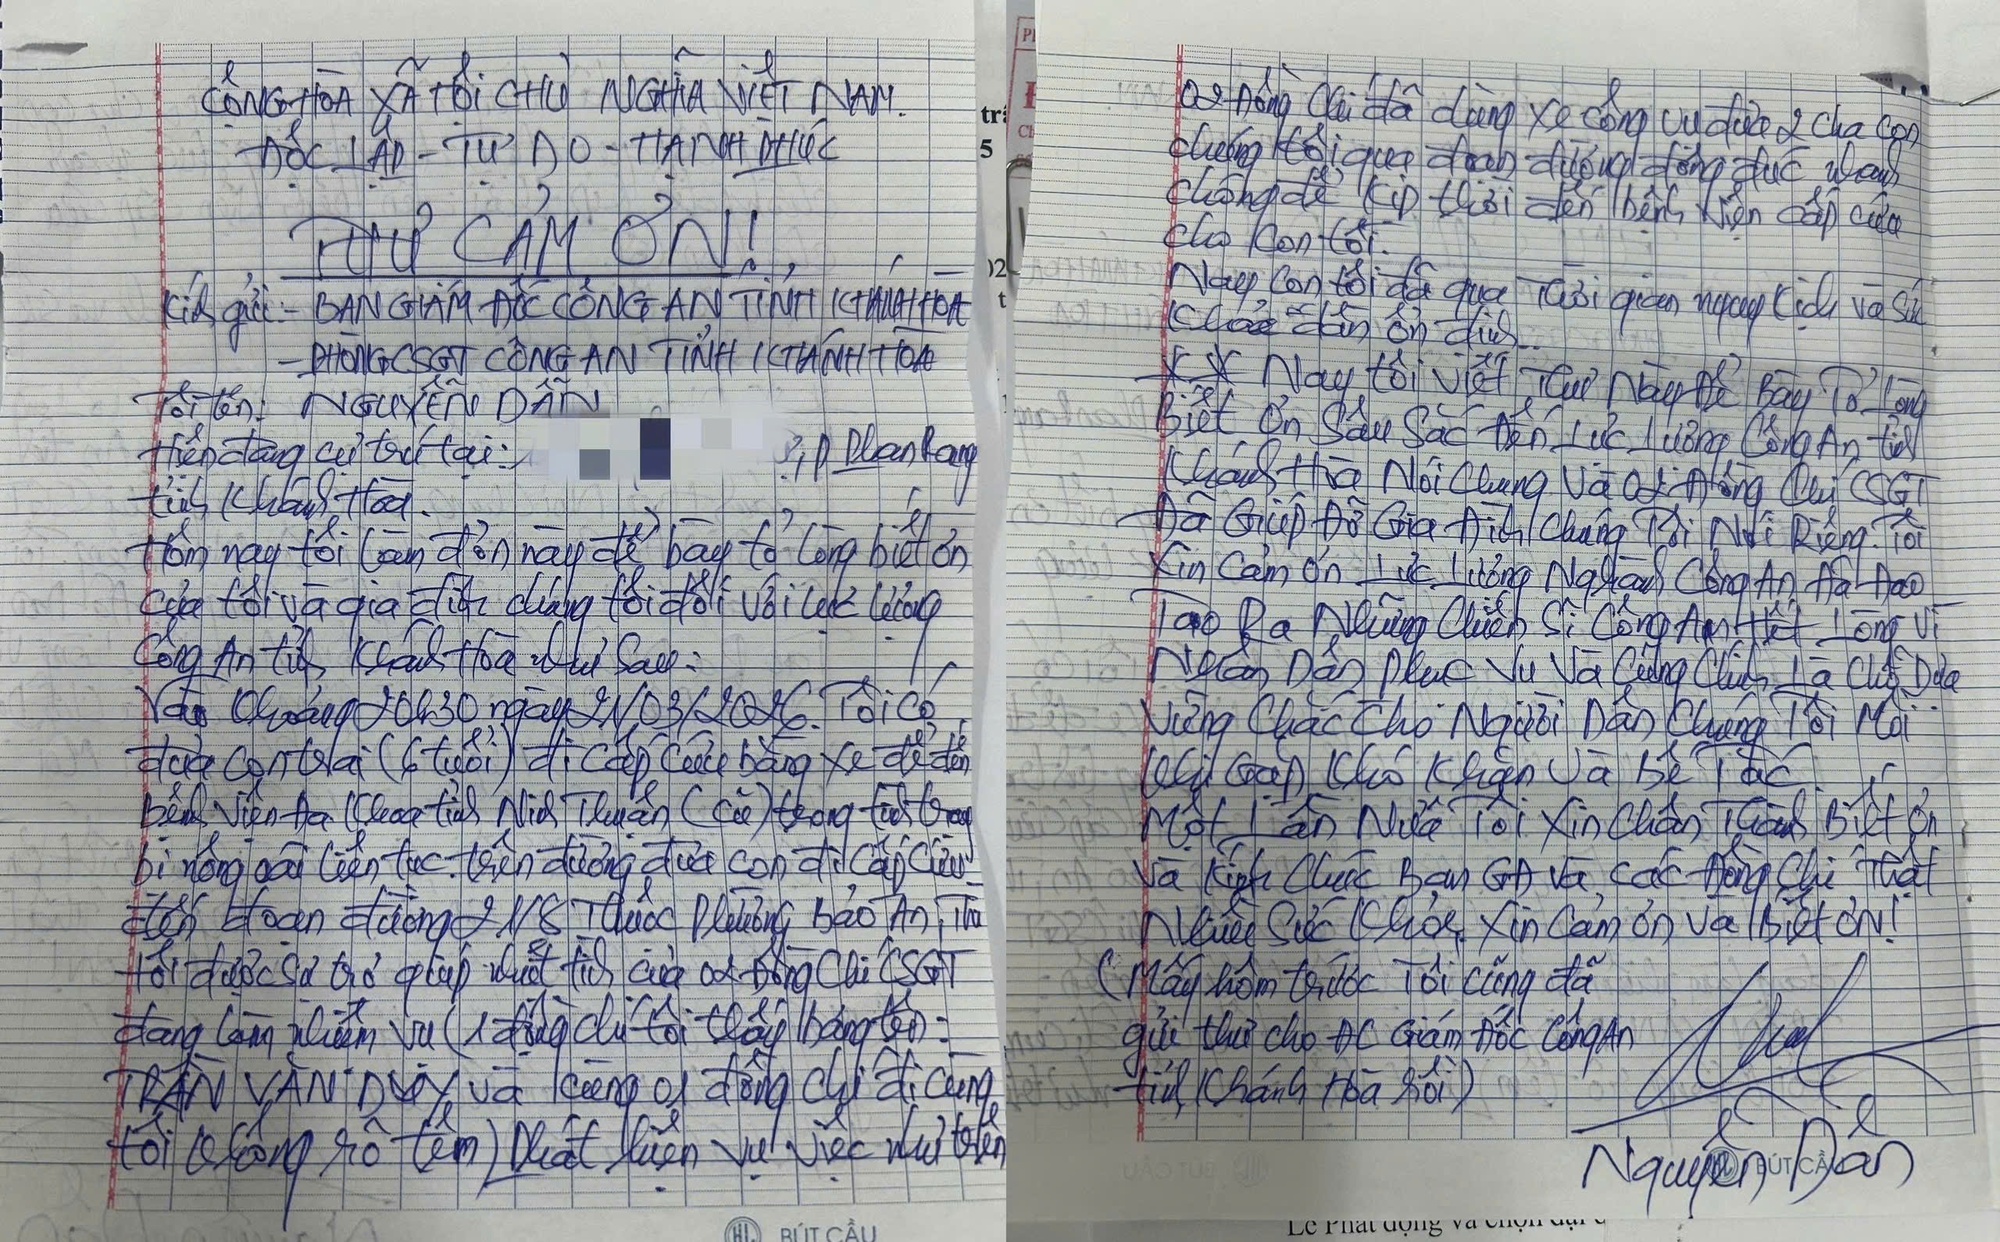 CỘNG HÒA XÃ HỘI CHỦ NGHĨA VIỆT NAM.
ĐỘC LẬP - TỰ DO - HẠNH PHÚC
THƯ CẢM ƠN!
Kính gửi: - BAN GIÁM ĐỐC CÔNG AN TỈNH KHÁNH HÒA
- PHÒNG CSGT CÔNG AN TỈNH KHÁNH HÒA
Tôi tên: NGUYỄN DẪN
Hiện đang cư trú tại: , P Phan Rang
tỉnh Khánh Hòa.
Hôm nay tôi làm đơn này để bày tỏ lòng biết ơn
của tôi và gia đình chúng tôi đối với lực lượng
Công An tỉnh Khánh Hòa như sau:
Vào khoảng 20h30 ngày 21/03/2026. Tôi có
đưa con trai (6 tuổi) đi cấp cứu bằng xe để đến
Bệnh viện Đa khoa tỉnh Ninh Thuận (cũ) trong tình trạng
bị nóng oải liên tục. trên đường đưa con đi cấp cứu
đến đoạn đường 21/8 Thuộc Phường Bảo An, Thì
tôi được sự trợ giúp nhiệt tình của 02 Đồng Chí CSGT
đang làm nhiệm vụ (1 đồng chí tôi thấy bảng tên:
TRẦN VĂN DUY và cùng 01 đồng chí đi cùng
tôi không rõ tên) phát hiện vụ việc như trên
02 Đồng Chí đã dùng xe công vụ đưa 2 cha con
chúng tôi qua đoạn đường đông đúc nhanh
chóng để kịp thời đến bệnh viện cấp cứu
cho con tôi.
Nay con tôi đã qua Thời gian nguy kịch và sức
khỏe dần ổn định..
** Nay tôi viết Thư Này Để Bày Tỏ Lòng
Biết Ơn Sâu Sắc Đến Lực Lượng Công An tỉnh
Khánh Hòa Nói Chung Và 02 Đồng Chí CSGT
Đã Giúp Đỡ Gia Đình Chúng Tôi Nói Riêng. Tôi
Xin Cảm ơn Lực Lượng Nghành Công An Đã Đào
Tạo Ra Những Chiến Sĩ Công An Hết Lòng Vì
Nhân Dân Phục Vụ Và Cũng Chính Là Chỗ Dựa
Vững Chắc Cho Người Dân Chúng Tôi Mỗi
Khi Gặp Khó Khăn Và Bế Tắc.
Một Lần Nữa Tôi Xin Chân Thành Biết Ơn
Và Kính Chúc Ban GĐ Và Các Đồng Chí Thật
Nhiều Sức Khỏe, Xin Cảm ơn Và Biết ƠN!
(Mấy hôm trước Tôi cũng đã
gửi thư cho ĐC Giám Đốc Công An
tỉnh Khánh Hòa rồi)
Nguyễn Dẫn
BÚT CẦU
BÚT CẦU